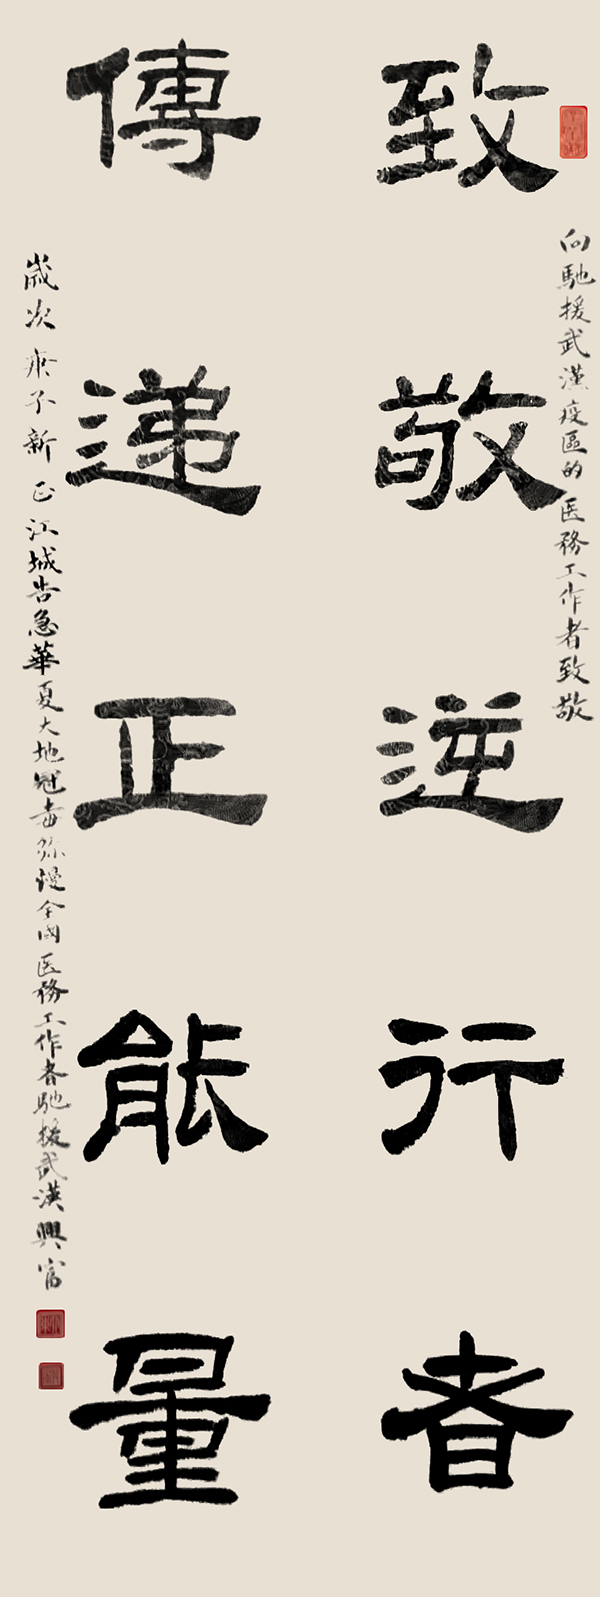 向馳援武漢疫區的医務工作者致敬
致敬逆行者
傳递正能量
歲次庚子新正江城告急華夏大地冠毒弥慢全國医務工作者馳援武漢興富